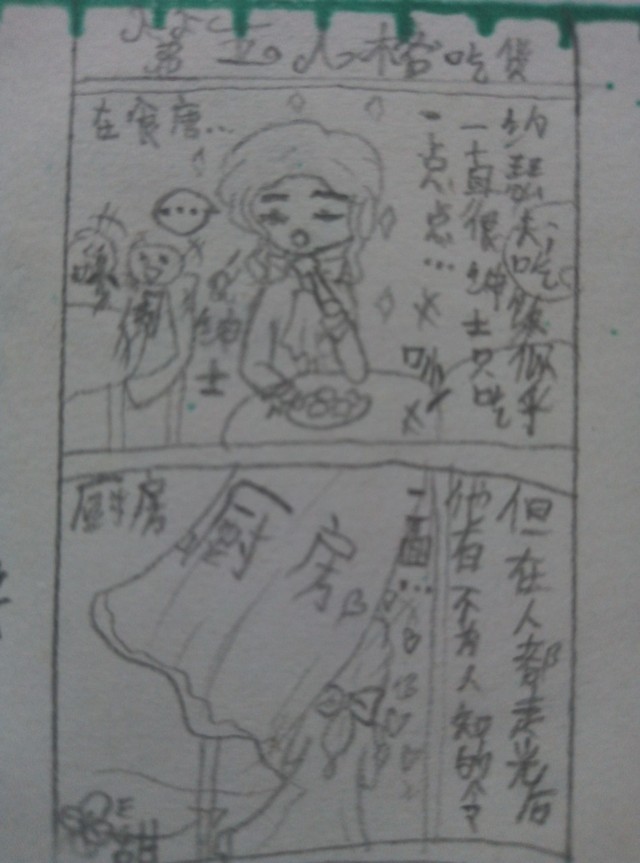 第五人格吃货
在食唐…
约瑟夫,吃饭似乎
一直很绅士只吃
一点点…
…
绅士
厨房
厨房
但在人都走光后
他有不为人知的
一面…
甜